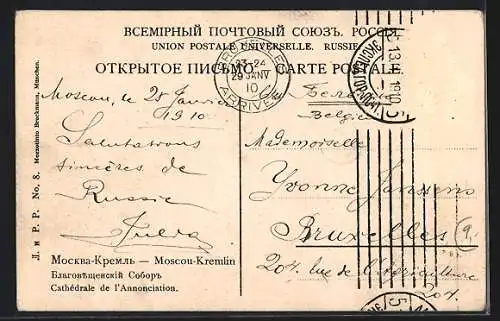 ВСЕМІРНЫЙ ПОЧТОВЫЙ СОЮЗЪ. РОССІЯ
UNION POSTALE UNIVERSELLE. RUSSIE
ОТКРЫТОЕ ПИСЬМО — CARTE POSTALE
BRUXELLES
23-24
29 JANV
10
ARRIVÉE
Moscou, le 25 Janvier
1910
Salutations
sincères de
Russie
Julia
Москва-Кремль — Moscou-Kremlin
Благовѣщенскій Соборъ
Cathédrale de l'Annonciation.
Л. и Р. Р. No. 8. Mezzotinto Bruckmann, München.
Бельгія
Belgie
Mademoiselle
Yvonne Janssens
Bruxelles
204. rue de l'Agriculture
204.